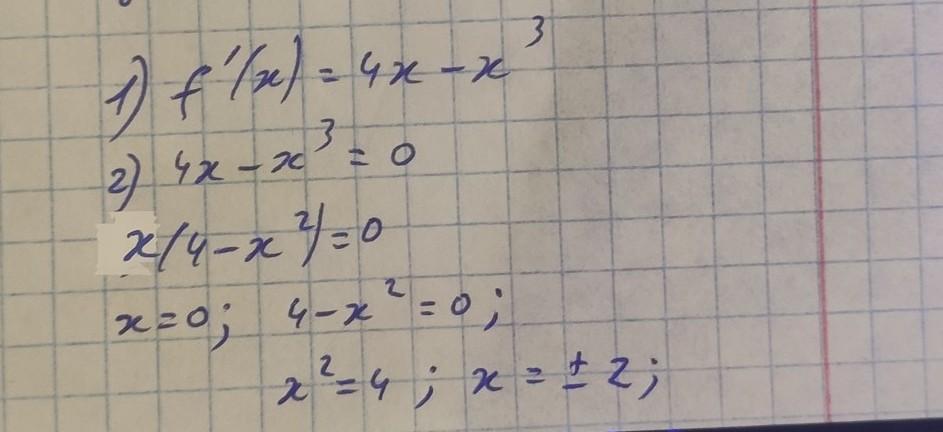 1) f'(x) = 4x - x³
2) 4x - x³ = 0
x(4 - x²) = 0
x = 0; 4 - x² = 0;
x² = 4; x = ± 2;